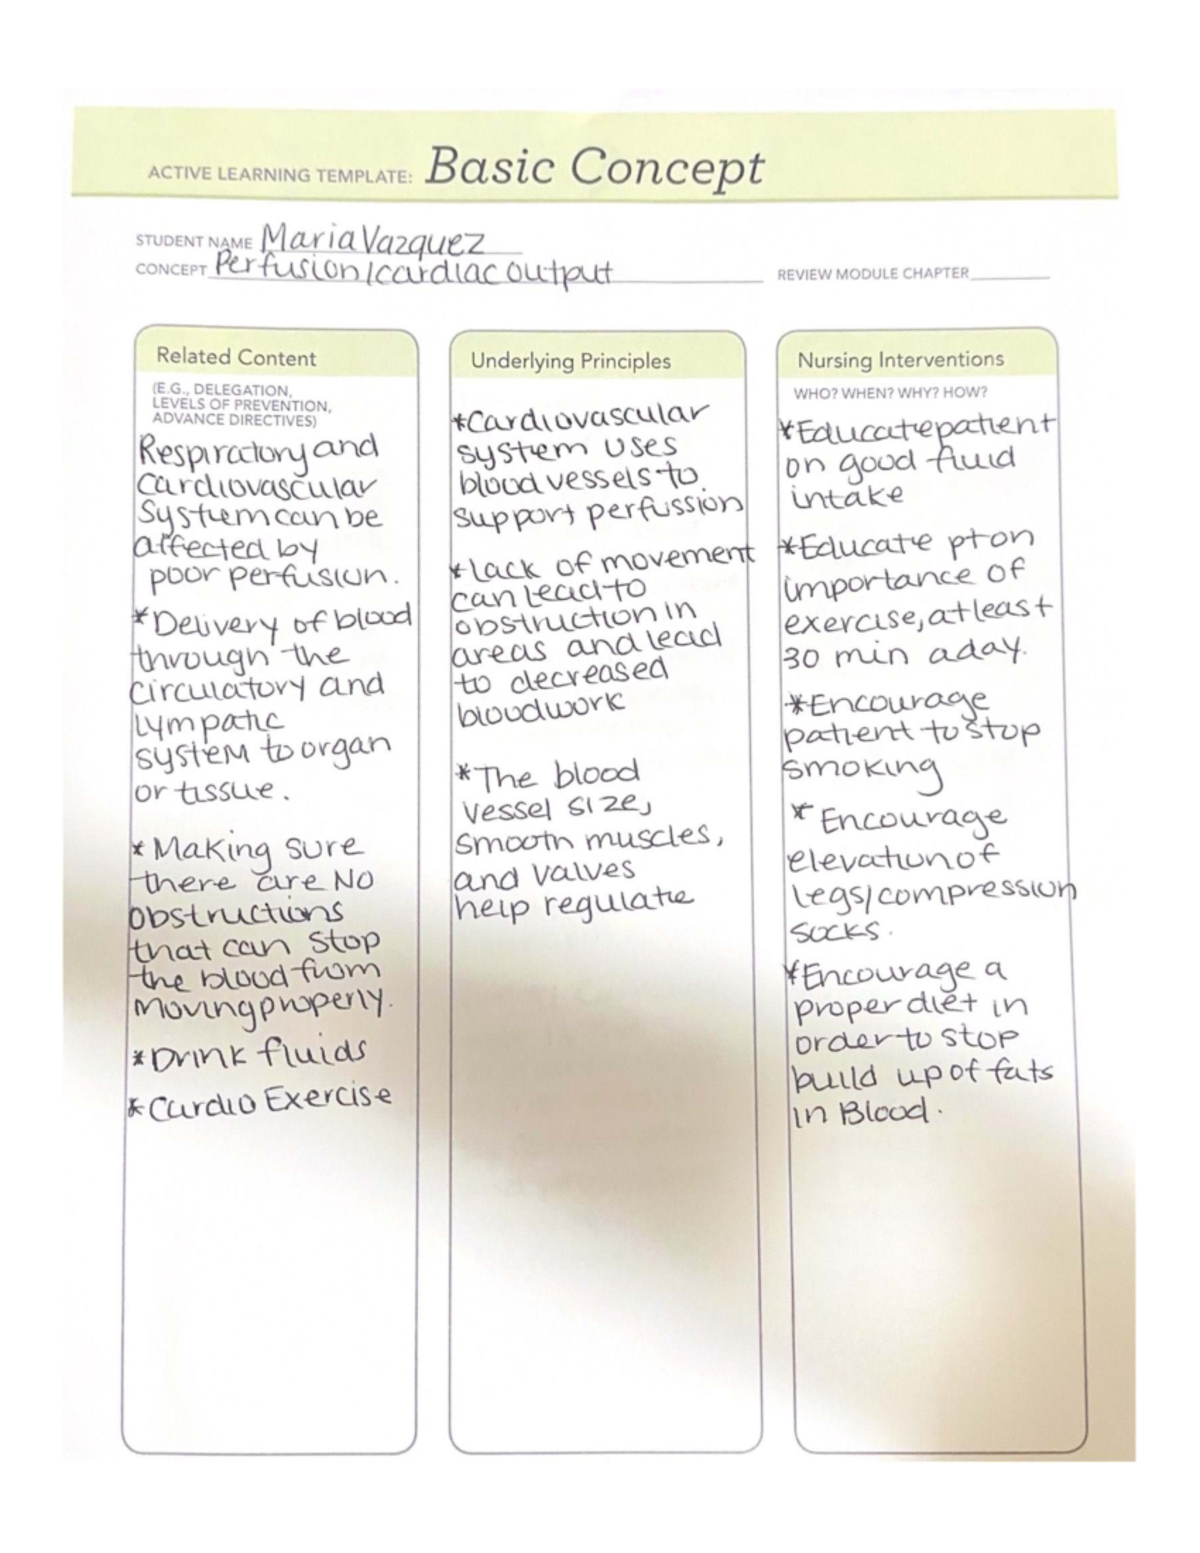 ACTIVE LEARNING TEMPLATE: Basic Concept
STUDENT NAME Maria Vazquez
CONCEPT Perfusion/cardiac output
REVIEW MODULE CHAPTER
Related Content
(E.G., DELEGATION,
LEVELS OF PREVENTION,
ADVANCE DIRECTIVES)
Respiratory and
cardiovascular
System can be
affected by
poor perfusion.
*Delivery of blood
through the
circulatory and
Lympatic
system to organ
or tissue.
*Making sure
there are NO
obstructions
that can stop
the blood from
moving properly.
*Drink fluids
*Cardio Exercise
Underlying Principles
*Cardiovascular
system uses
blood vessels to
support perfussion
*lack of movement
can lead to
obstruction in
areas and lead
to decreased
bloodwork
*The blood
vessel size,
smooth muscles,
and valves
help regulate
Nursing Interventions
WHO? WHEN? WHY? HOW?
*Educate patient
on good fluid
intake
*Educate pt on
importance of
exercise, at least
30 min a day.
*Encourage
patient to stop
smoking
*Encourage
elevation of
legs/compression
socks.
*Encourage a
proper diet in
order to stop
build up of fats
in Blood.